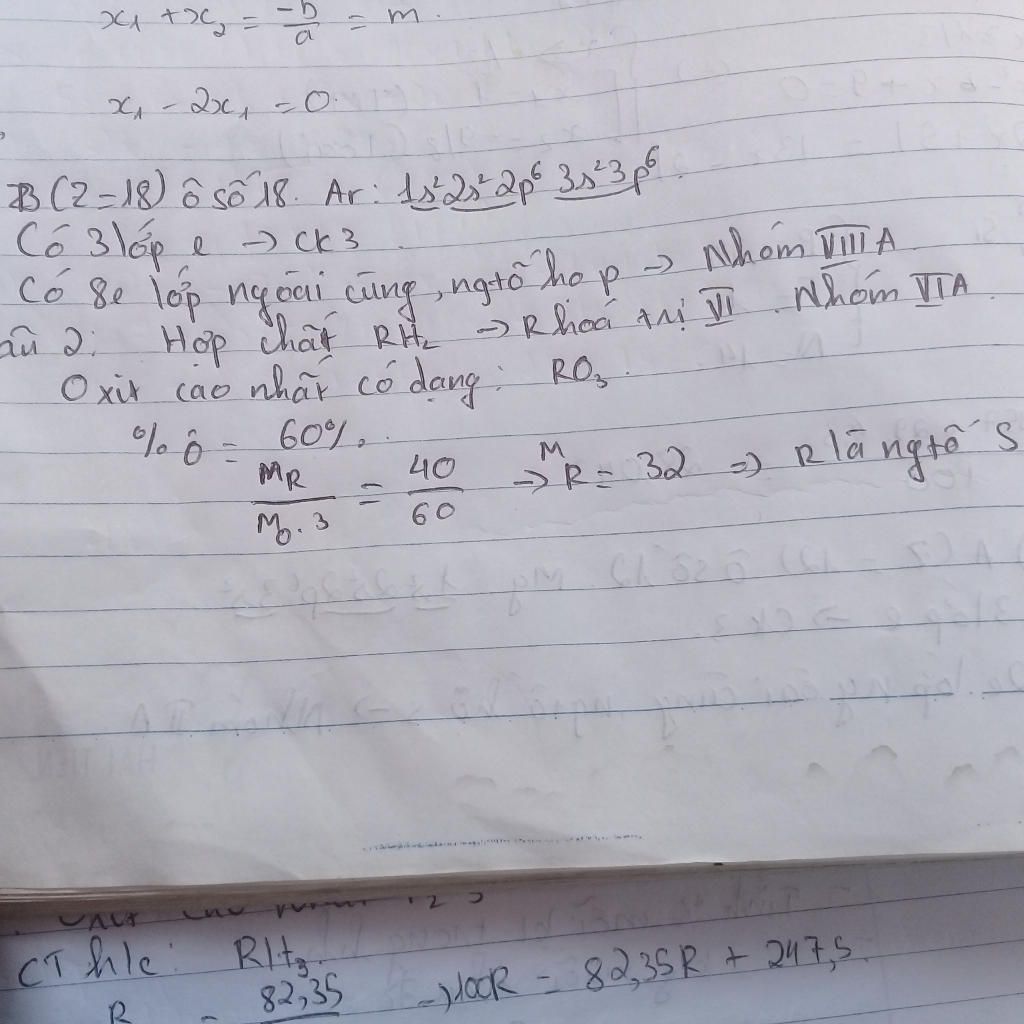 x₁ + x₂ = -b/a = m.
x₁ - 2x₁ = 0.
B (Z=18) ô số 18. Ar: 1s²2s²2p⁶3s²3p⁶.
Có 3 lớp e → CK3
Có 8e lớp ngoài cùng, ngtố họ p → Nhóm VIIIA
âu 2: Hợp chất RH₂ → R hoá trị VI. Nhóm VIA.
Oxit cao nhất có dạng: RO₃.
% O = 60%.
M_R / M_O . 3 = 40/60 → M R = 32 ⇒ R là ngtố S
CT h/c: RH₃.
R = 82,35 → 100R = 82,35R + 247,5.